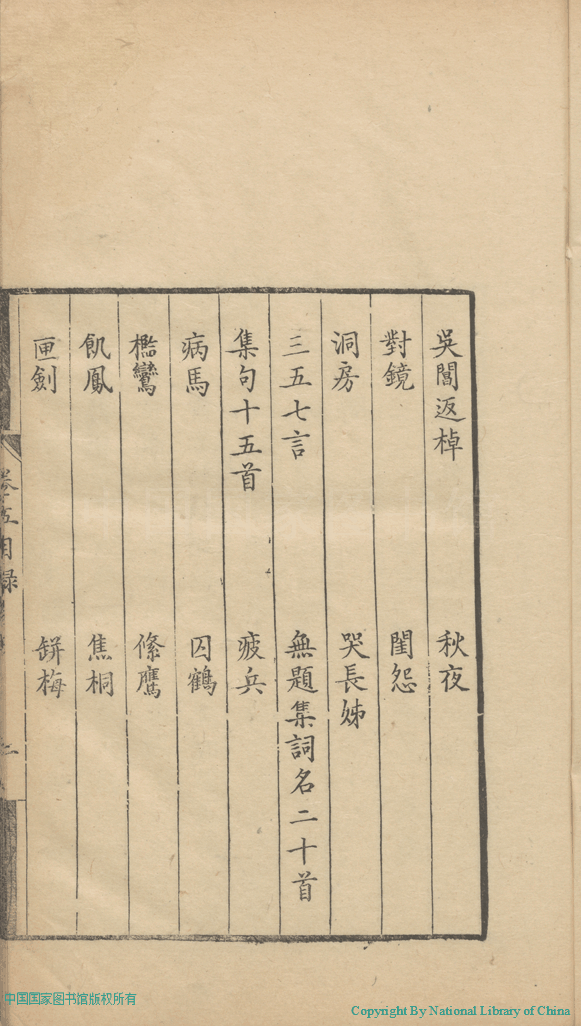 吳閶返棹　秋夜
對鏡　閨怨
洞房　哭長姊
三五七言　無題集詞名二十首
集句十五首　疲兵
病馬　囚鶴
檻鸞　絛鷹
飢鳳　焦桐
匣劍　缾梅
卷十五目錄
中国国家图书馆版权所有
Copyright By National Library of China